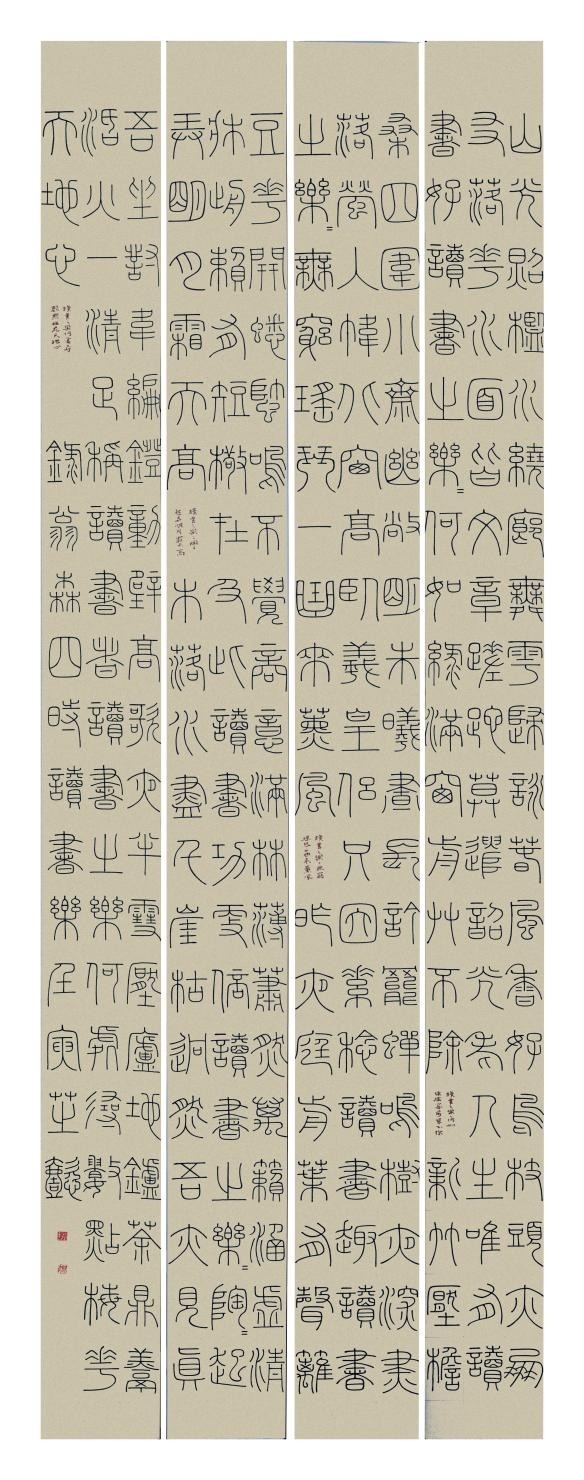 山光照檻水繞廊舞雩歸詠春風香好鳥枝頭亦朋
友落花水面皆文章蹉跎莫遣韶光老人生唯有讀
書好讀書之樂=何如綠滿窗前草不除新竹壓檐
桑四圍小齋幽敞明朱曦晝長吟罷蟬鳴樹夜深燼
落螢入幃北窗高臥羲皇侶只因素稔讀書趣讀書
之樂=無窮瑤琴一曲來薰風昨夜庭前葉有聲籬
豆花開蟋蟀鳴不覺商意滿林薄蕭然萬籟涵虛清
牀賴有短檠在及此讀書功更倍讀書之樂=陶=起
弄明月霜天高木落水盡千崖枯迥然吾亦見真
吾坐對韋編燈動壁高歌夜半雪壓廬地爐茶鼎烹
活火一清足稱讀書者讀書之樂何處尋數點梅花
天地心錄翁森四時讀書樂壬寅